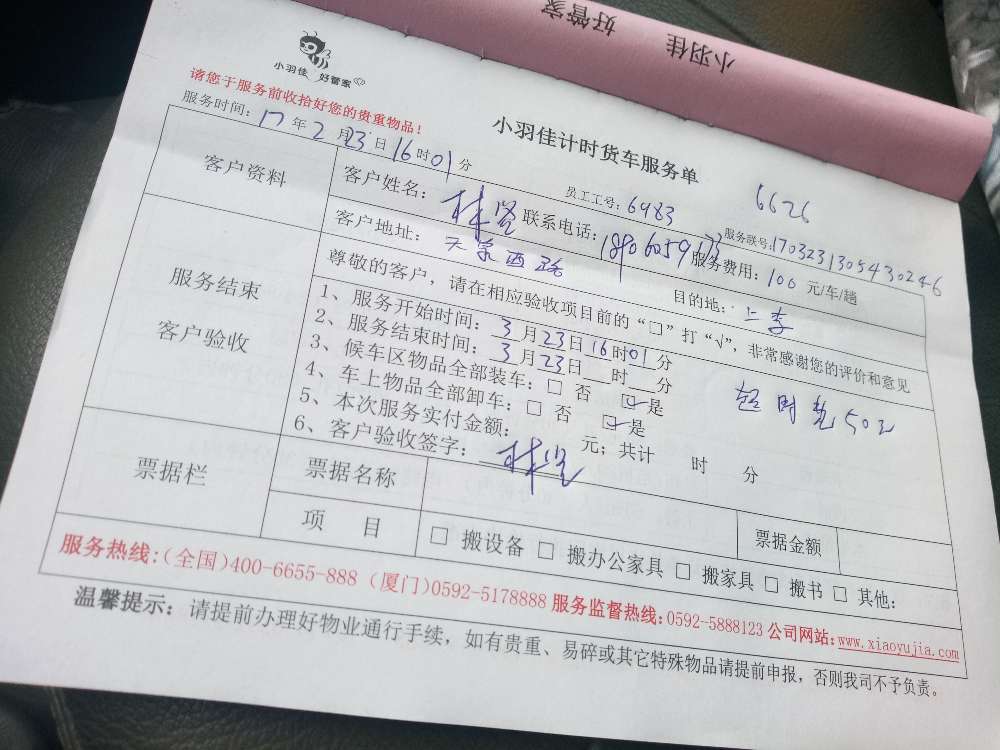 好管家 小羽佳
小羽佳 好管家
请您于服务前收拾好您的贵重物品！
小羽佳计时货车服务单
6626
服务时间：17年2月23日16时01分
员工工号：6983
服务联号：1703231305430246
客户资料
客户姓名：林
联系电话：
服务费用：100 元/车/趟
客户地址：
目的地：上李
服务结束
客户验收
尊敬的客户，请在相应验收项目前的“□”打“√”，非常感谢您的评价和意见
1、服务开始时间：3月23日16时01分
2、服务结束时间：3月23日 时 分
3、候车区物品全部装车：□ 否 ☑是
超时费50元
4、车上物品全部卸车：□ 否 ☑是
5、本次服务实付金额： 元；共计 时 分
6、客户验收签字：林
票据栏
票据名称
票据金额
项 目
□ 搬设备 □ 搬办公家具 □ 搬家具 □ 搬书 □ 其他：
服务热线：(全国)400-6655-888 (厦门)0592-5178888 服务监督热线：0592-5888123 公司网站：www.xiaoyujia.com
温馨提示：请提前办理好物业通行手续，如有贵重、易碎或其它特殊物品请提前申报，否则我司不予负责。